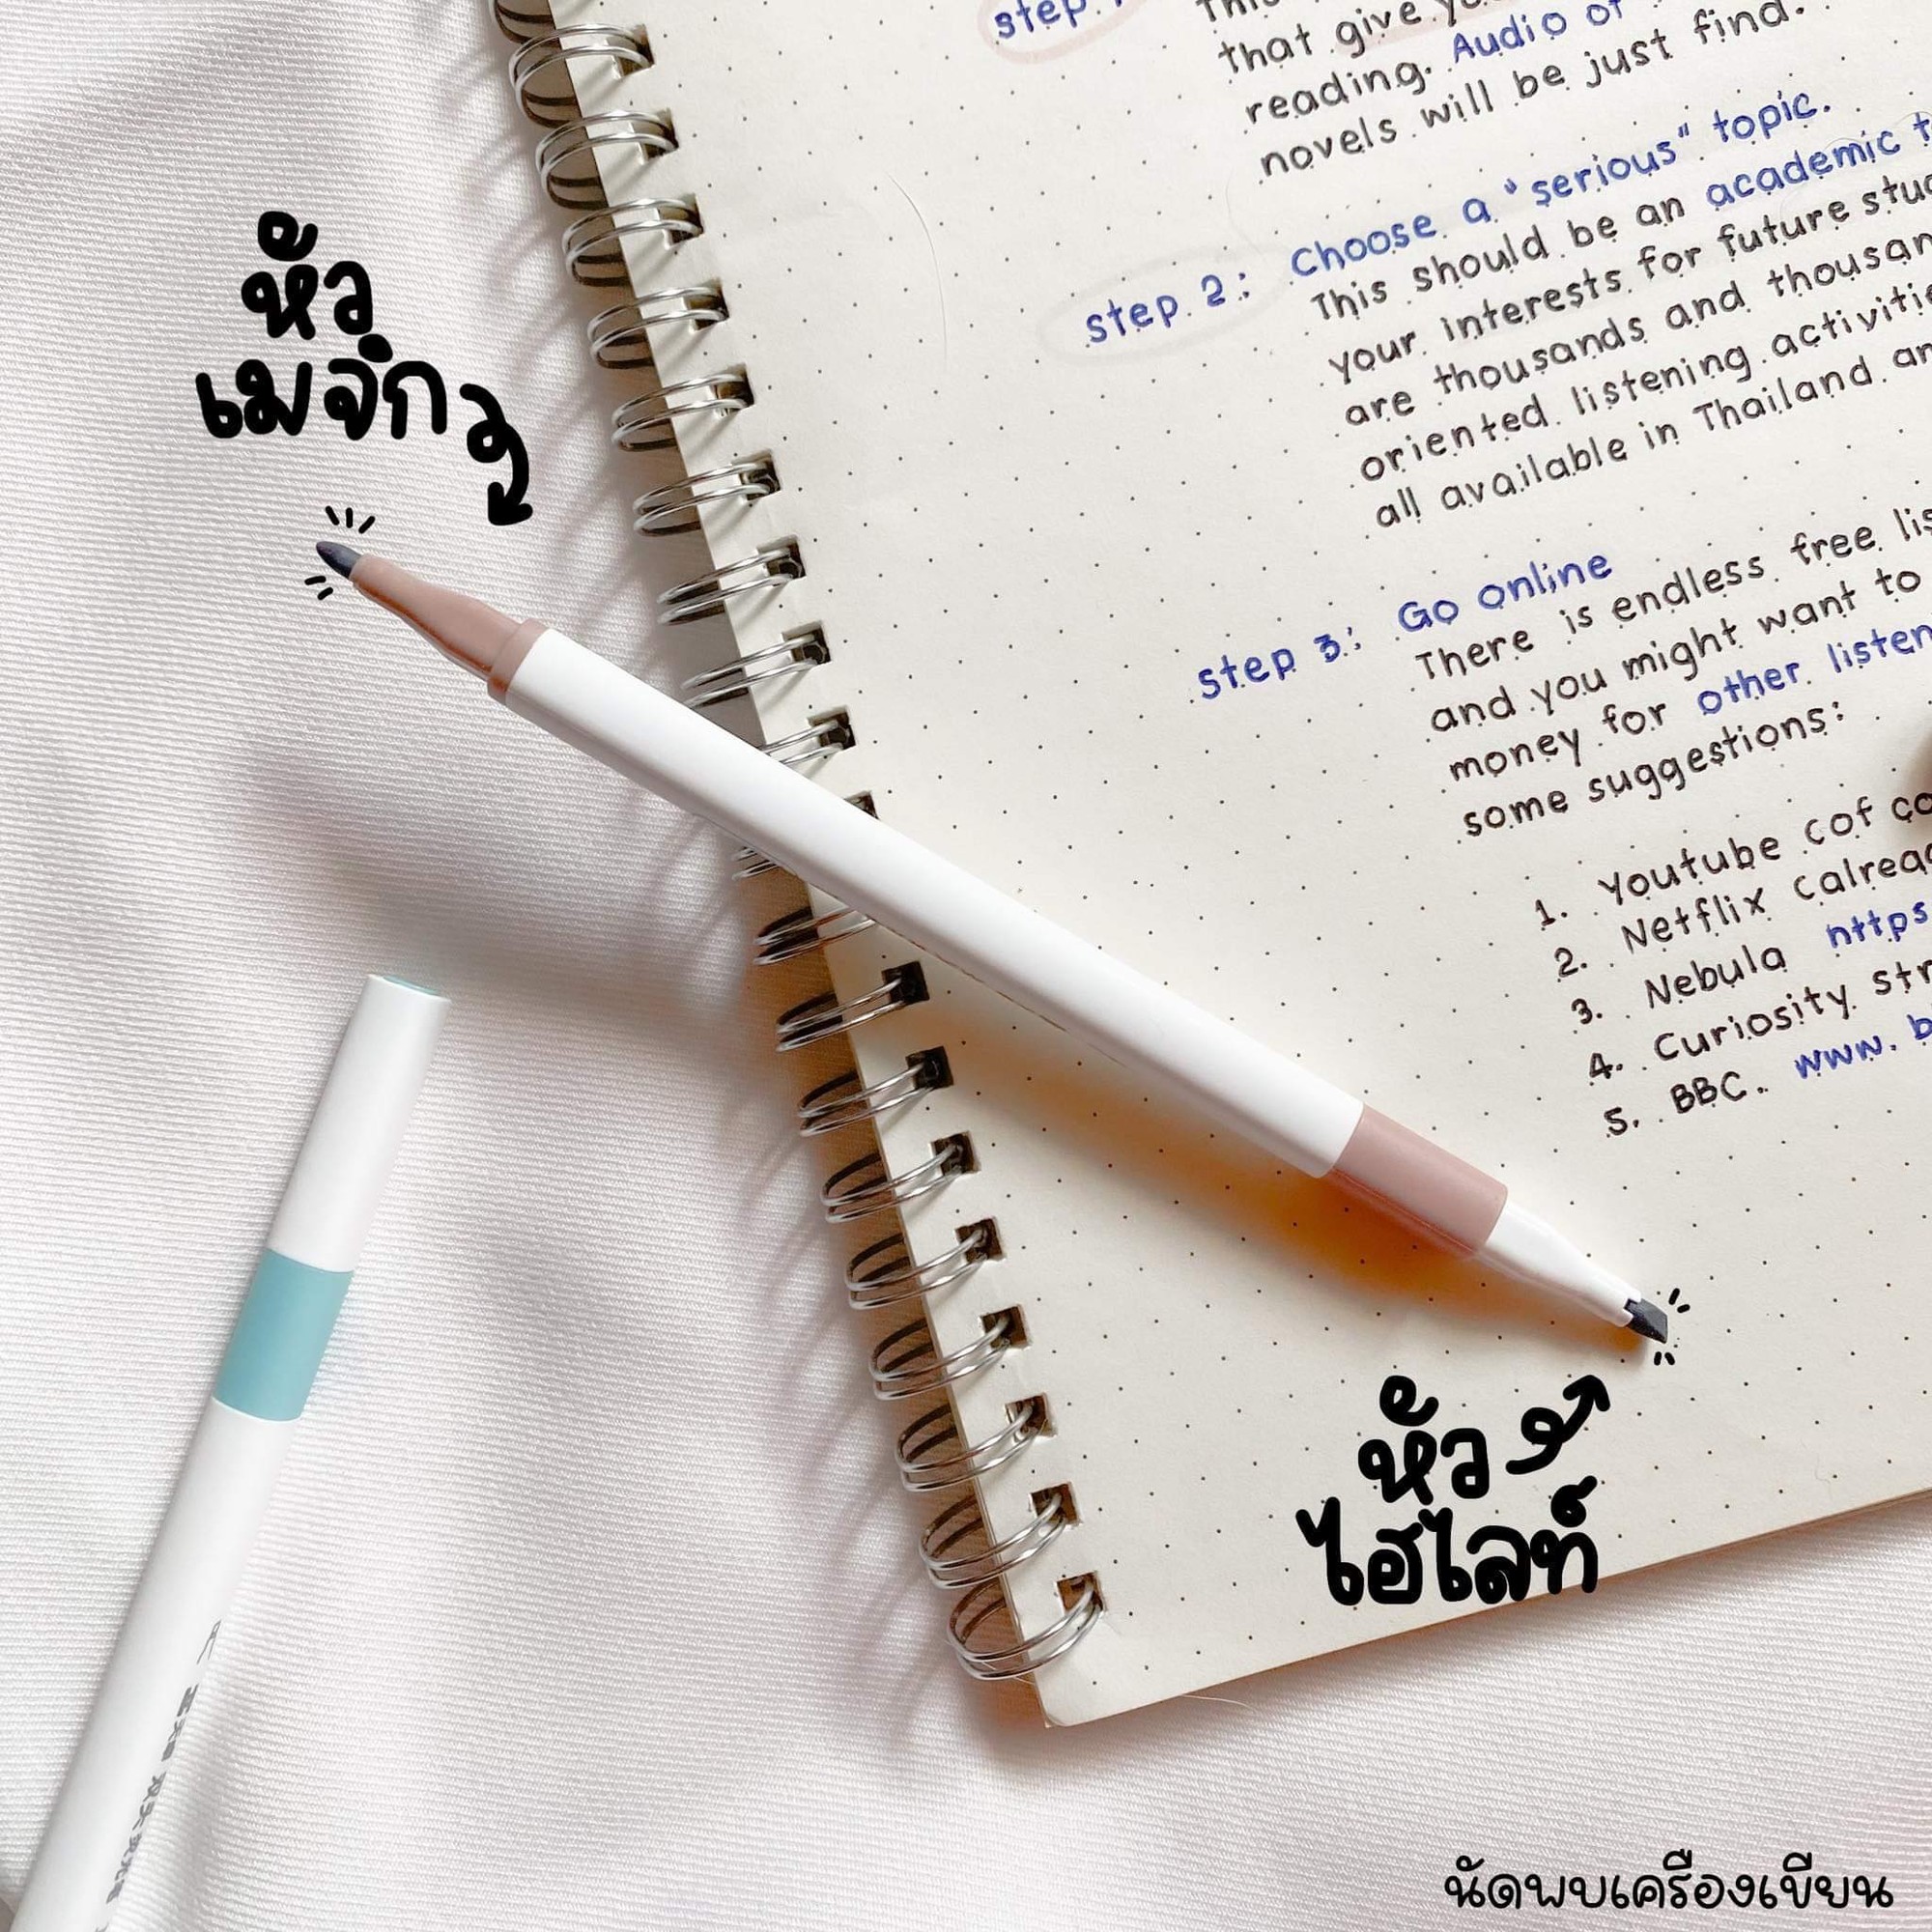 หัว
เมจิก
step
that give
reading. Audio of
novels will be just find.
step 2: Choose a "serious" topic.
This should be an academic
your interests for future
are thousands and
oriented listening
all available in Thailand
step 3: Go online
There is endless free
and you might want to
money for other
some suggestions:
1. Youtube cof
2. Netflix
3. Nebula https
4. Curiosity
5. BBC. www.
หัว
ไฮไลท์
นัดพบเครื่องเขียน